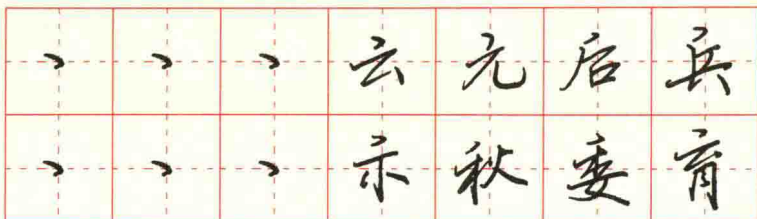 丶 丶 丶 云 元 后 兵
丶 丶 丶 示 秋 委 育